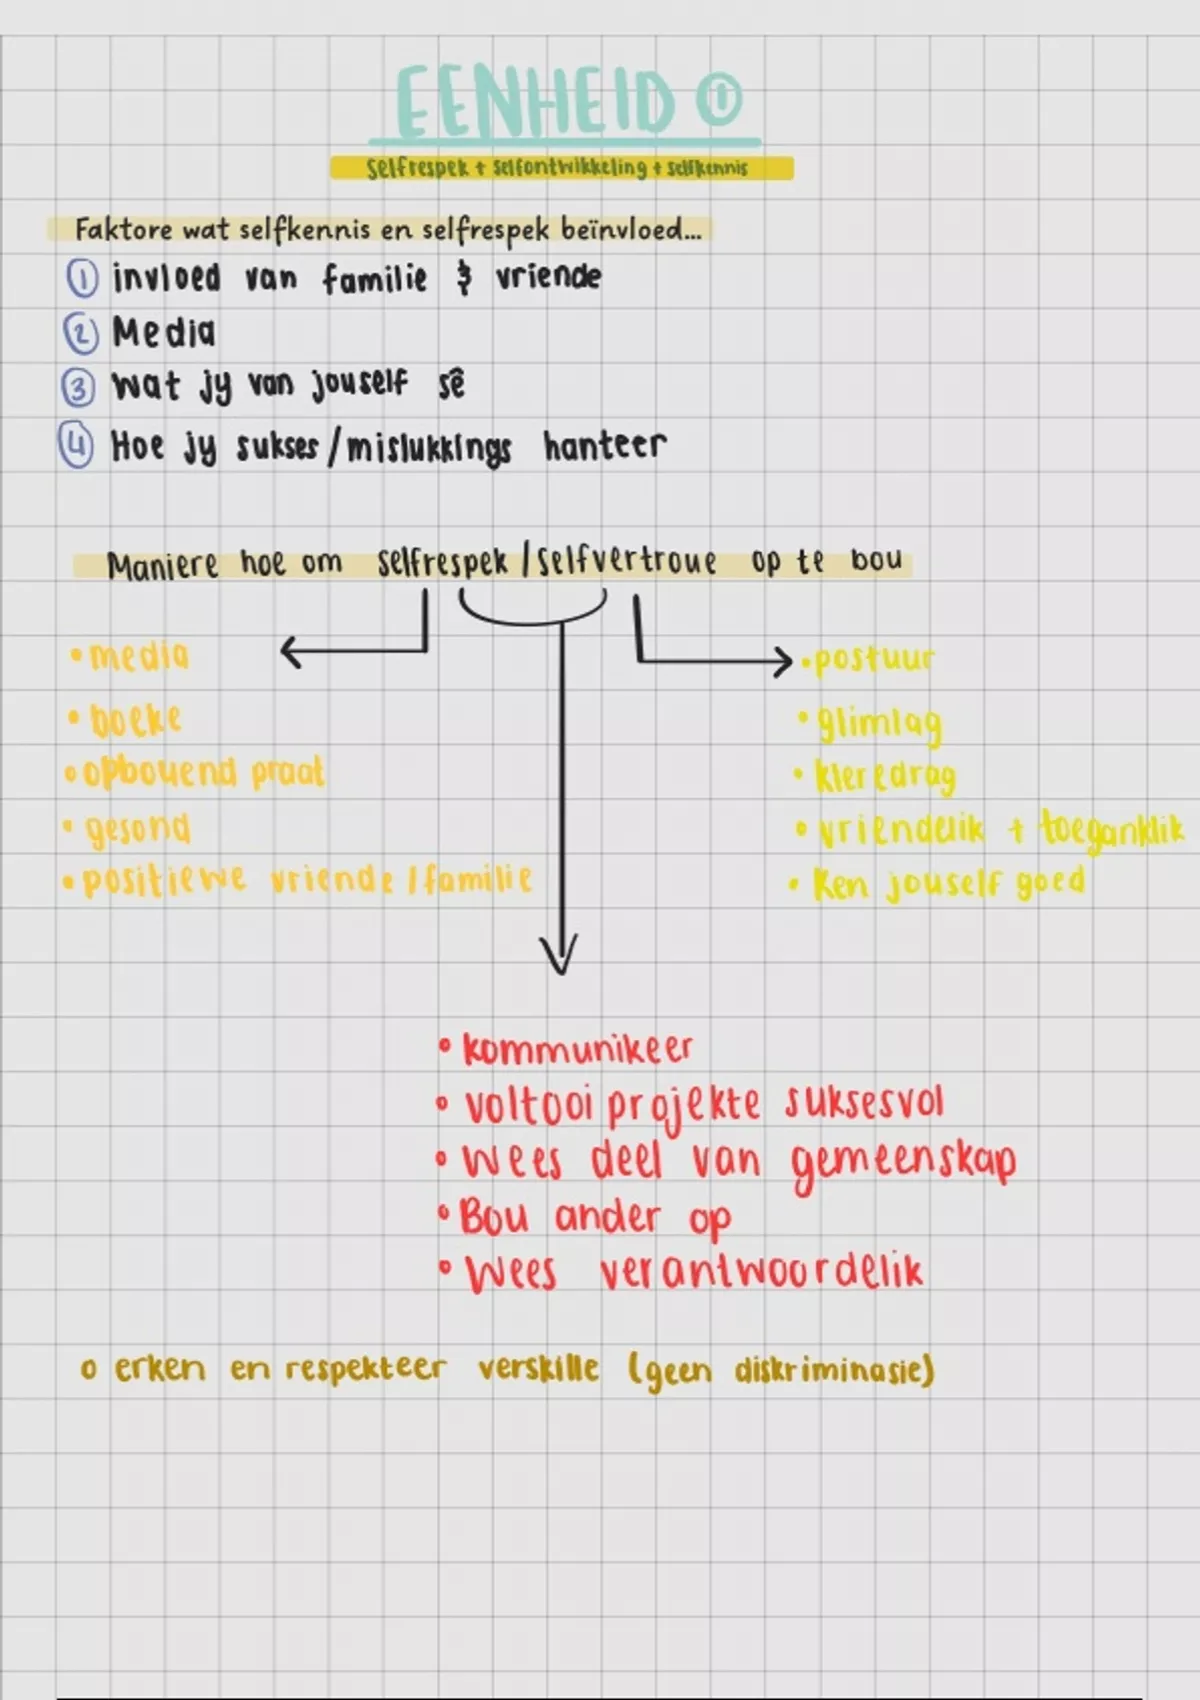 EENHEID ①
selfrespek + selfontwikkeling + selfkennis
Faktore wat selfkennis en selfrespek beïnvloed...
① invloed van familie & vriende
② Media
③ wat jy van jouself sê
④ Hoe jy sukses/mislukkings hanteer
Maniere hoe om selfrespek/selfvertroue op te bou
• media
• boeke
• opbouend praat
• gesond
• positiewe vriende/familie
• postuur
• glimlag
• kleredrag
• vriendelik + toeganklik
• Ken jouself goed
• kommunikeer
• voltooi projekte suksesvol
• Wees deel van gemeenskap
• Bou ander op
• Wees verantwoordelik
o erken en respekteer verskille (geen diskriminasie)